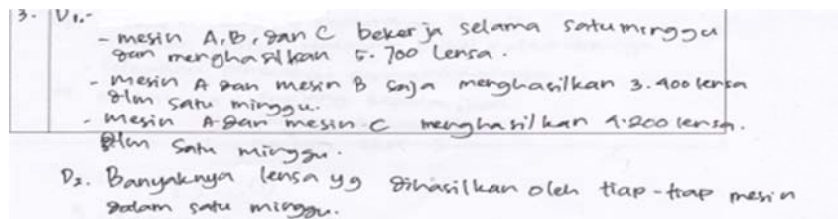 3. D₁.
- mesin A, B, dan C bekerja selama satu minggu
dan menghasilkan 5.700 lensa.
- mesin A dan mesin B saja menghasilkan 3.400 lensa
dlm satu minggu.
- mesin A dan mesin C menghasilkan 4.200 lensa.
dlm satu minggu.
D₂. Banyaknya lensa yg dihasilkan oleh tiap-tiap mesin
dalam satu minggu.